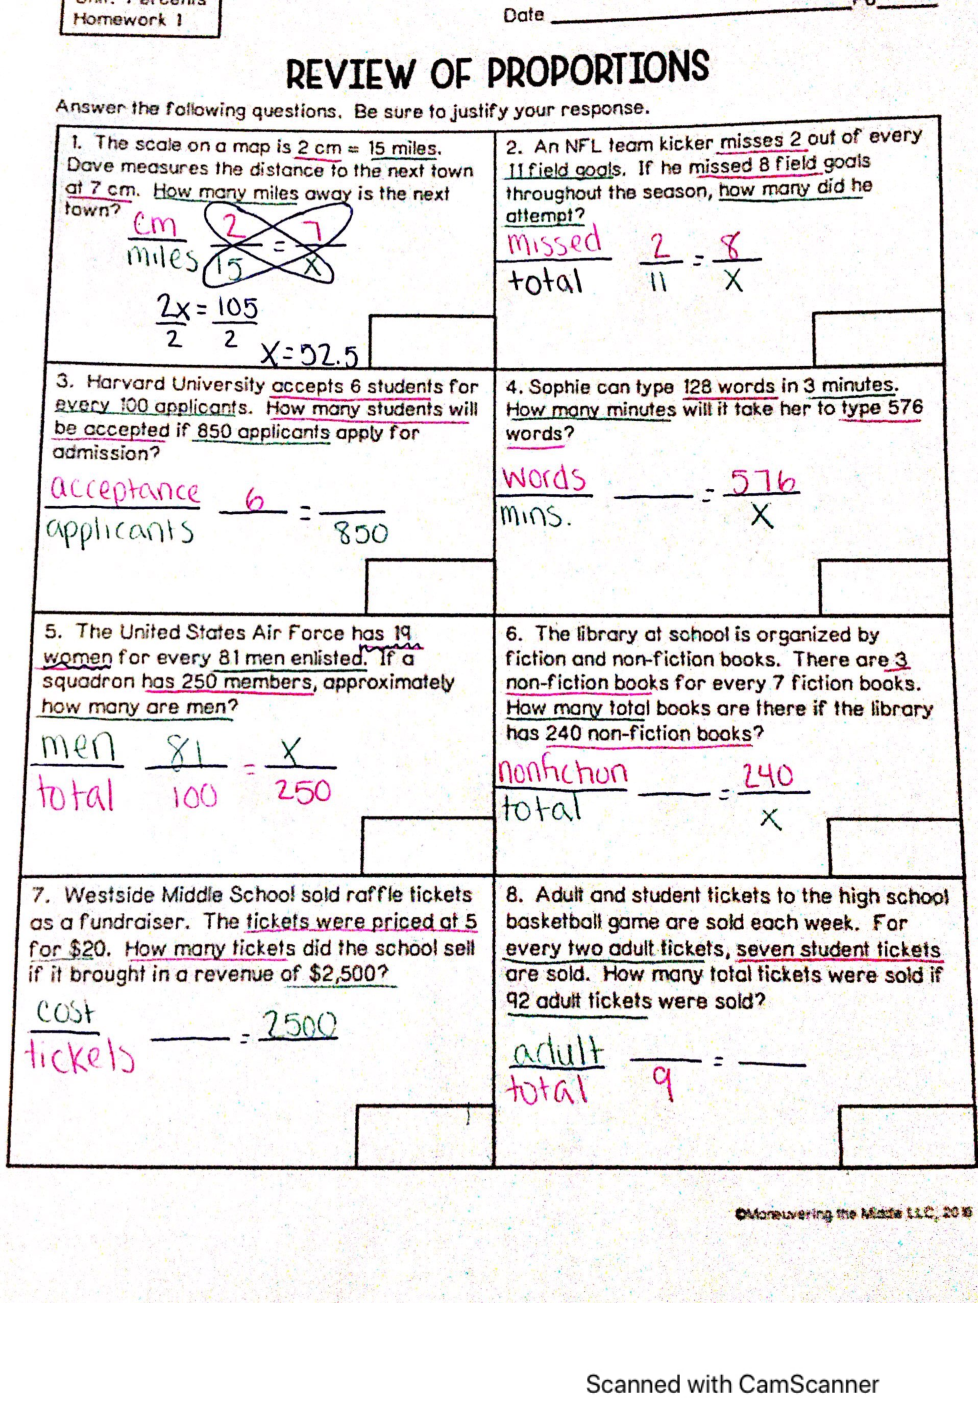 Homework 1
Date
REVIEW OF PROPORTIONS
Answer the following questions. Be sure to justify your response.
1. The scale on a map is 2 cm = 15 miles.
Dave measures the distance to the next town
at 7 cm. How many miles away is the next
town?
cm 2 = 7
miles 15 x
2x = 105
2 2
x = 52.5
2. An NFL team kicker misses 2 out of every
11 field goals. If he missed 8 field goals
throughout the season, how many did he
attempt?
missed 2 = 8
total 11 x
3. Harvard University accepts 6 students for
every 100 applicants. How many students will
be accepted if 850 applicants apply for
admission?
acceptance 6 =
applicants 850
4. Sophie can type 128 words in 3 minutes.
How many minutes will it take her to type 576
words?
words = 576
mins. x
5. The United States Air Force has 19
women for every 81 men enlisted. If a
squadron has 250 members, approximately
how many are men?
men 81 = x
total 100 250
6. The library at school is organized by
fiction and non-fiction books. There are 3
non-fiction books for every 7 fiction books.
How many total books are there if the library
has 240 non-fiction books?
nonfiction = 240
total x
7. Westside Middle School sold raffle tickets
as a fundraiser. The tickets were priced at 5
for $20. How many tickets did the school sell
if it brought in a revenue of $2,500?
cost = 2500
tickets
8. Adult and student tickets to the high school
basketball game are sold each week. For
every two adult tickets, seven student tickets
are sold. How many total tickets were sold if
92 adult tickets were sold?
adult =
total 9
©Maneuvering the Middle LLC, 2016
Scanned with CamScanner